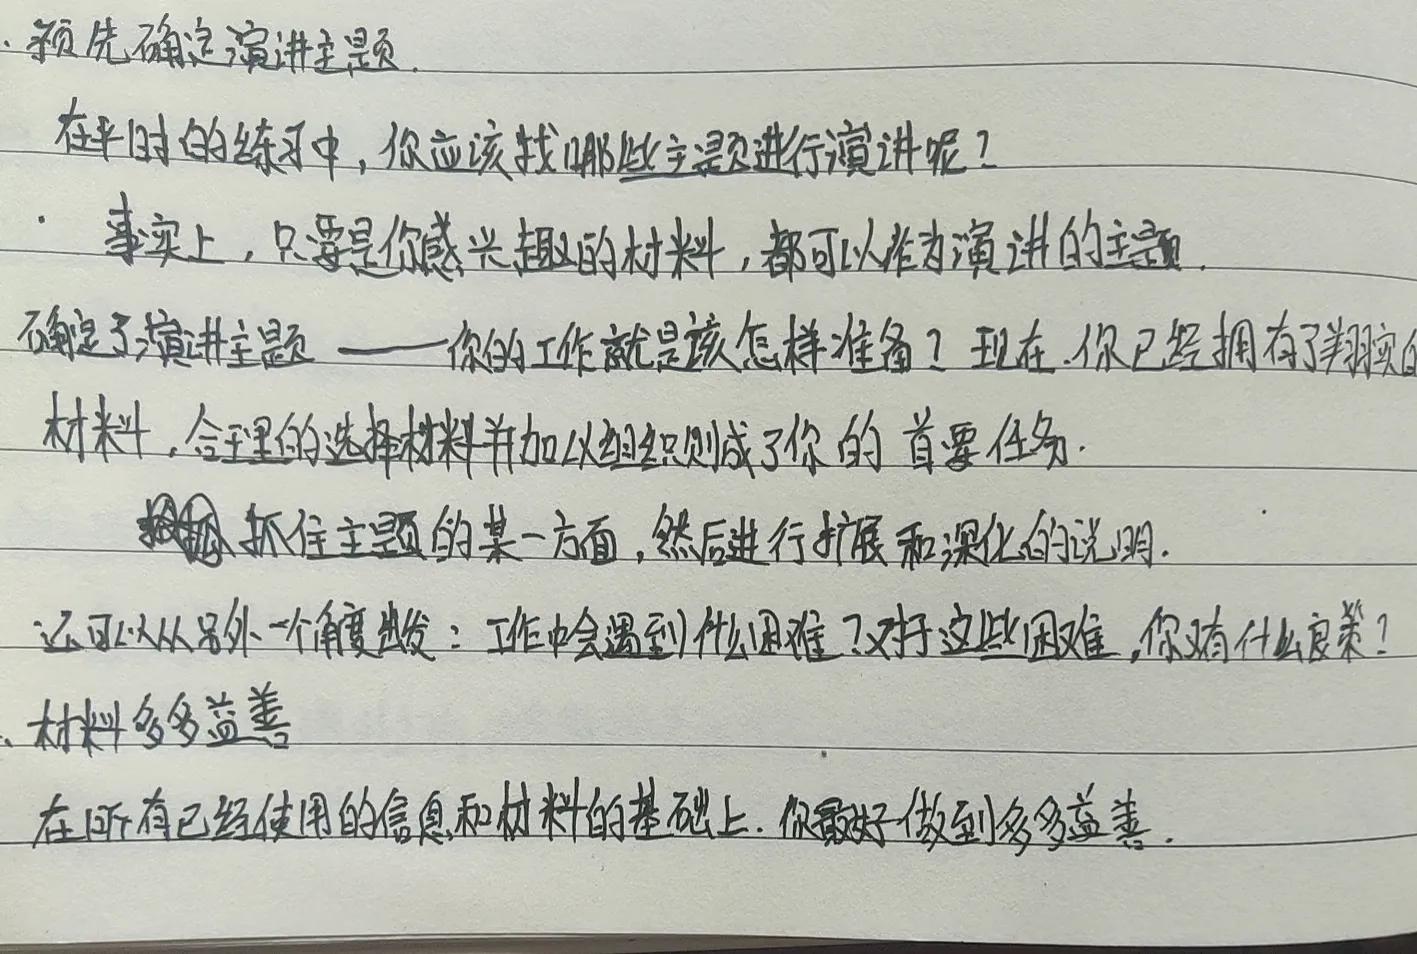 . 预先确定演讲主题.
在平时的练习中,你应该找哪些主题进行演讲呢?
· 事实上,只要是你感兴趣的材料,都可以作为演讲的主题.
确定了演讲主题——你的工作就是该怎样准备?现在.你已经拥有了翔实的
材料,合理的选择材料并加以组织则成了你的首要任务.
抓住主题的某一方面,然后进行扩展和深化的说明.
还可以从另外一个角度出发:工作中会遇到什么困难?对于这些困难,你又有什么良策?
、材料多多益善
在所有已经使用的信息和材料的基础上.你最好做到多多益善.